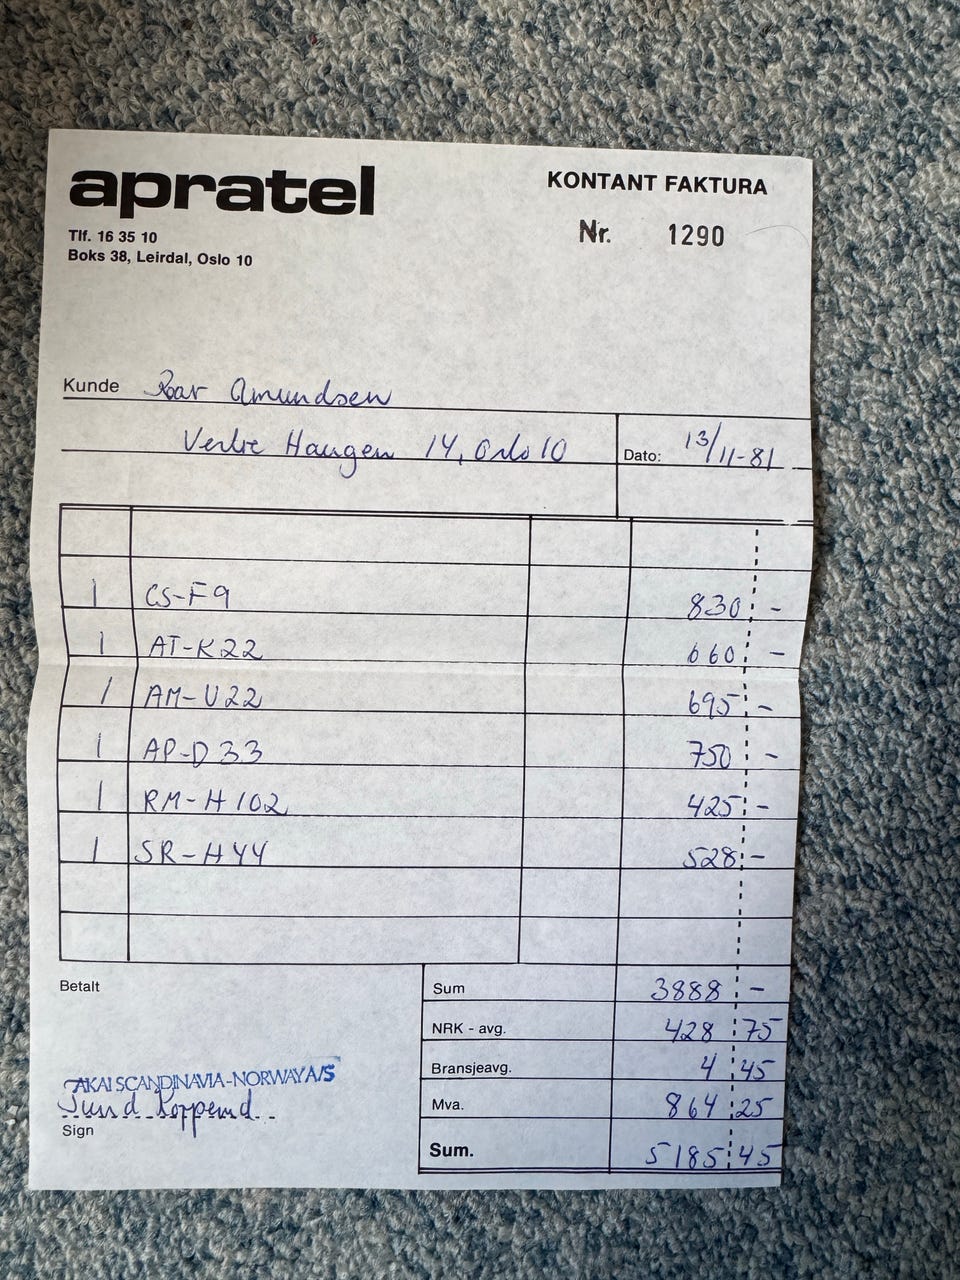 apratel
KONTANT FAKTURA
Tlf. 16 35 10
Boks 38, Leirdal, Oslo 10
Nr. 1290
Kunde Roar Amundsen
Haugen 14, Oslo 10
Dato: 13/11-81
1 CS-F9 830 -
1 AT-K22 660 -
1 AM-U22 695 -
1 AP-D33 750 -
1 RM-H102 425 -
1 SR-H44 528 -
Betalt
Sum 3888 -
NRK - avg. 428 75
Bransjeavg. 4 45
Mva. 864 25
Sum. 5185 45
AKAI SCANDINAVIA-NORWAY A/S
Sign